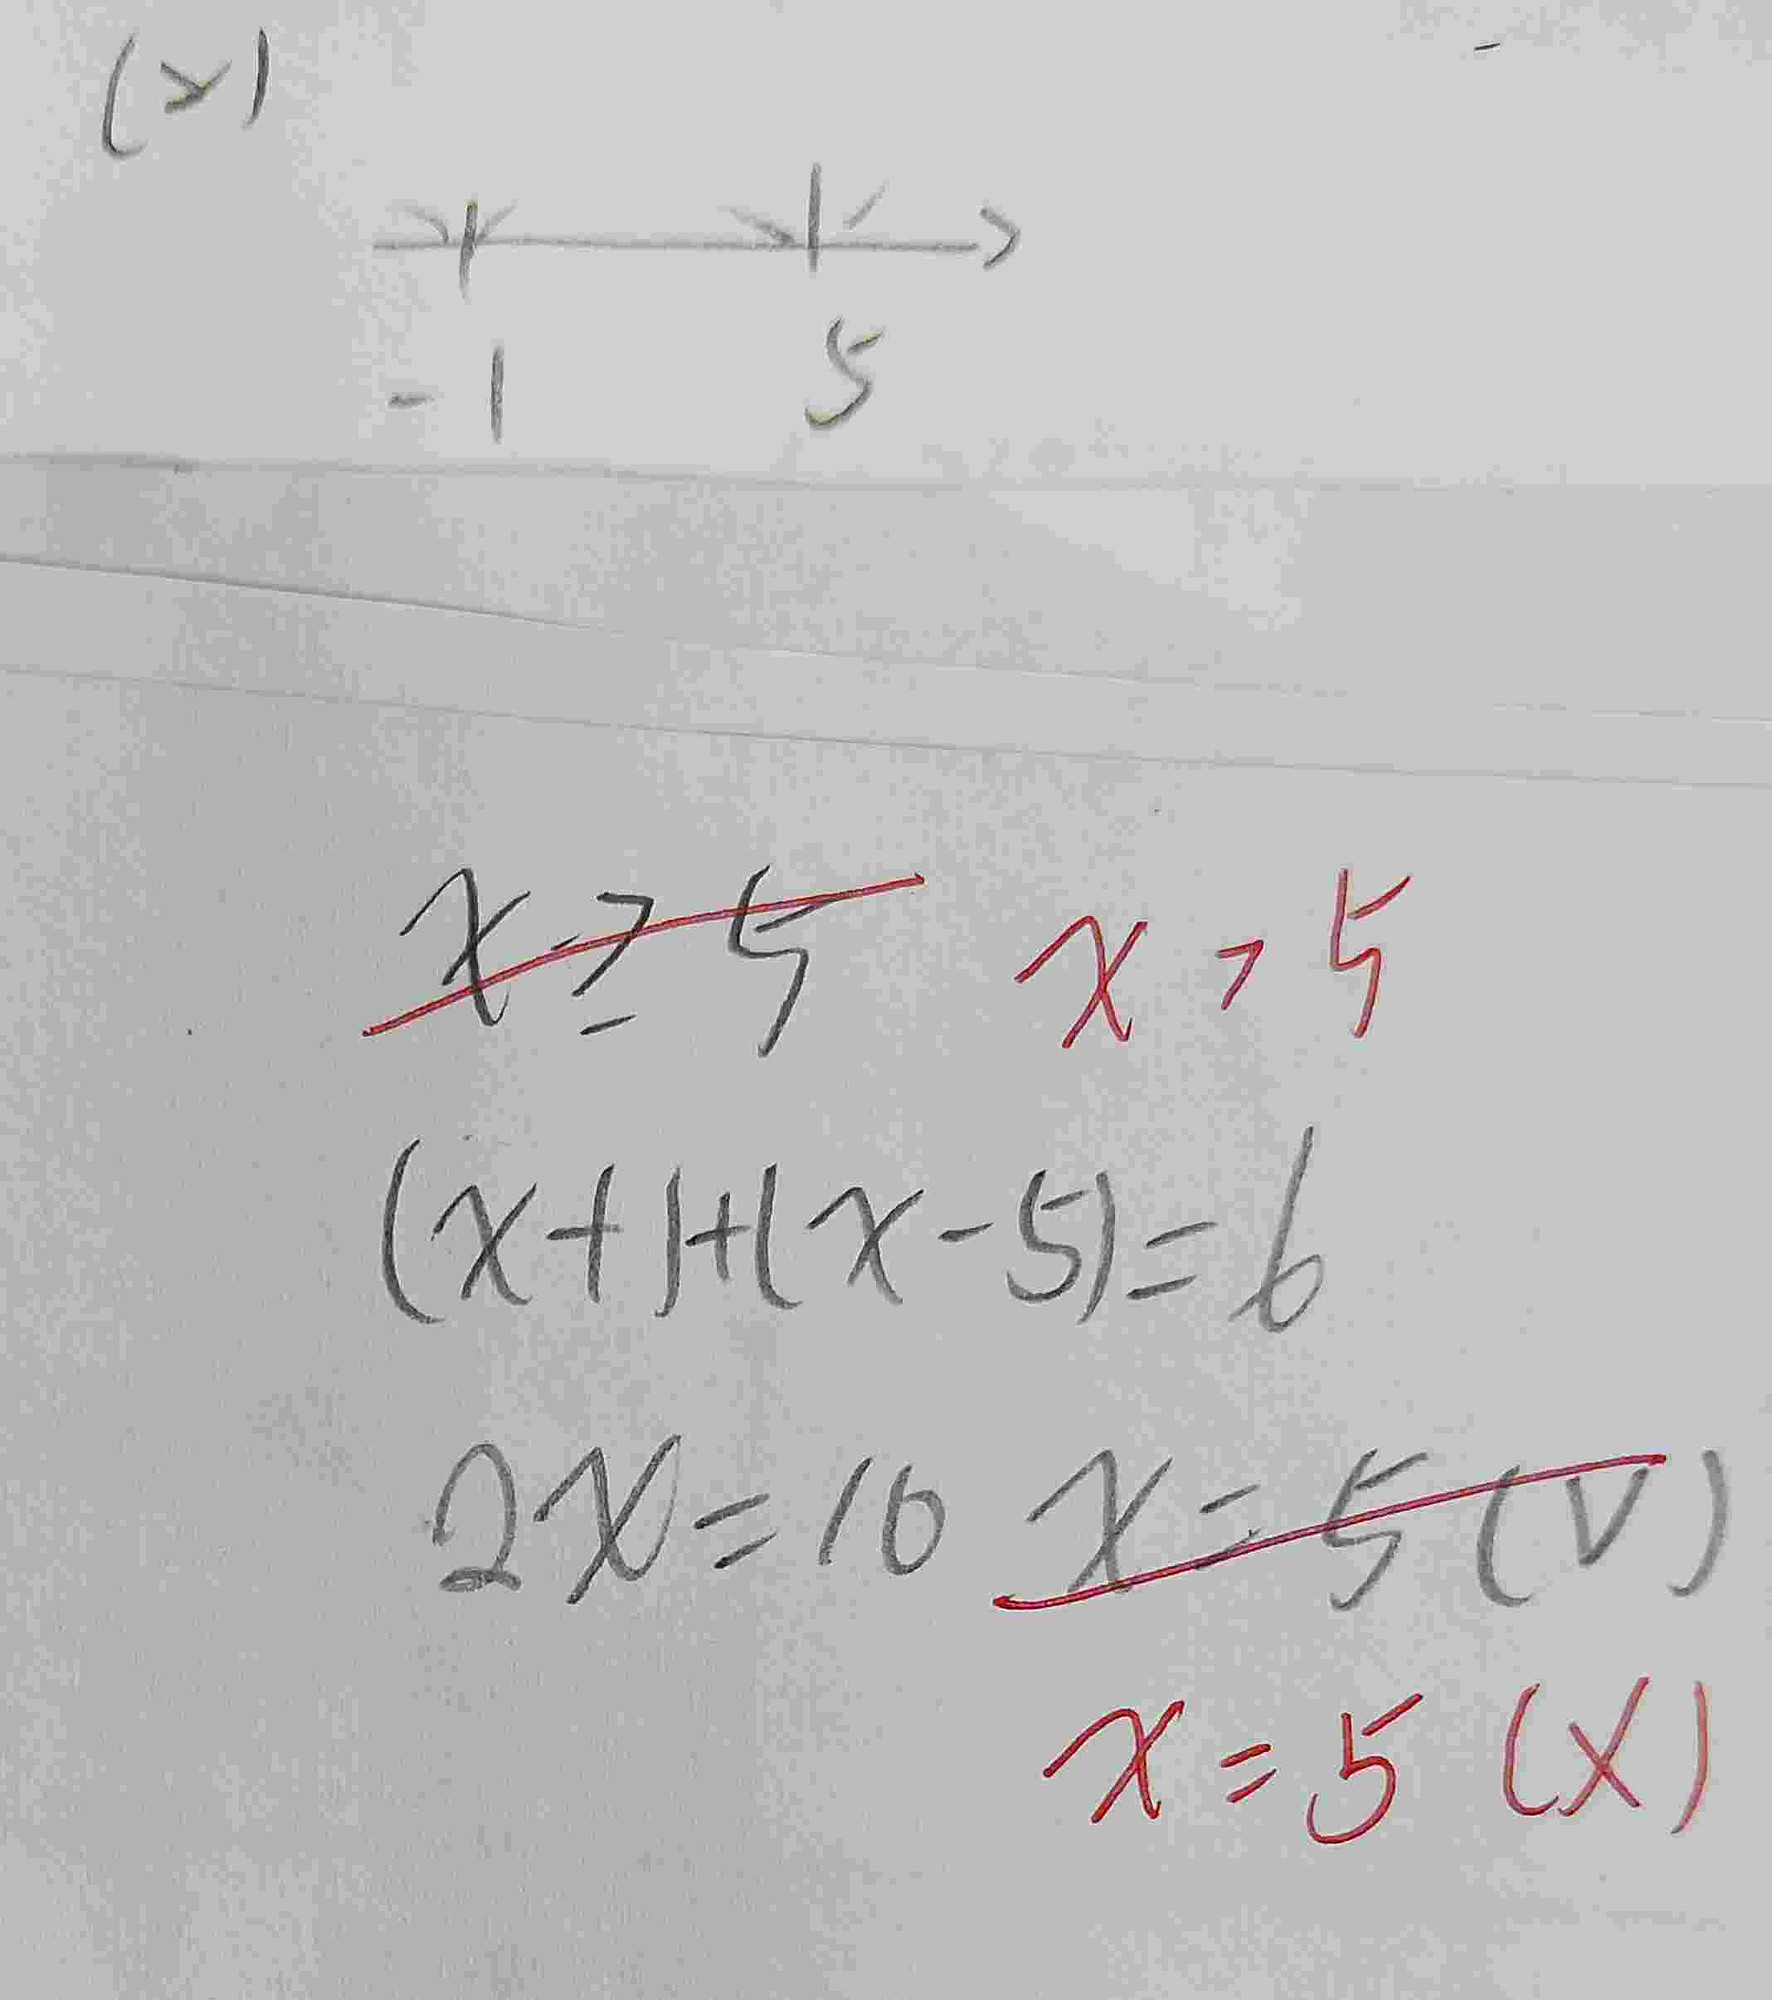 (2)
-1 5
x ≥ 5 x > 5
(x+1)+(x-5)=6
2x=10 x=5 (V)
x=5 (X)